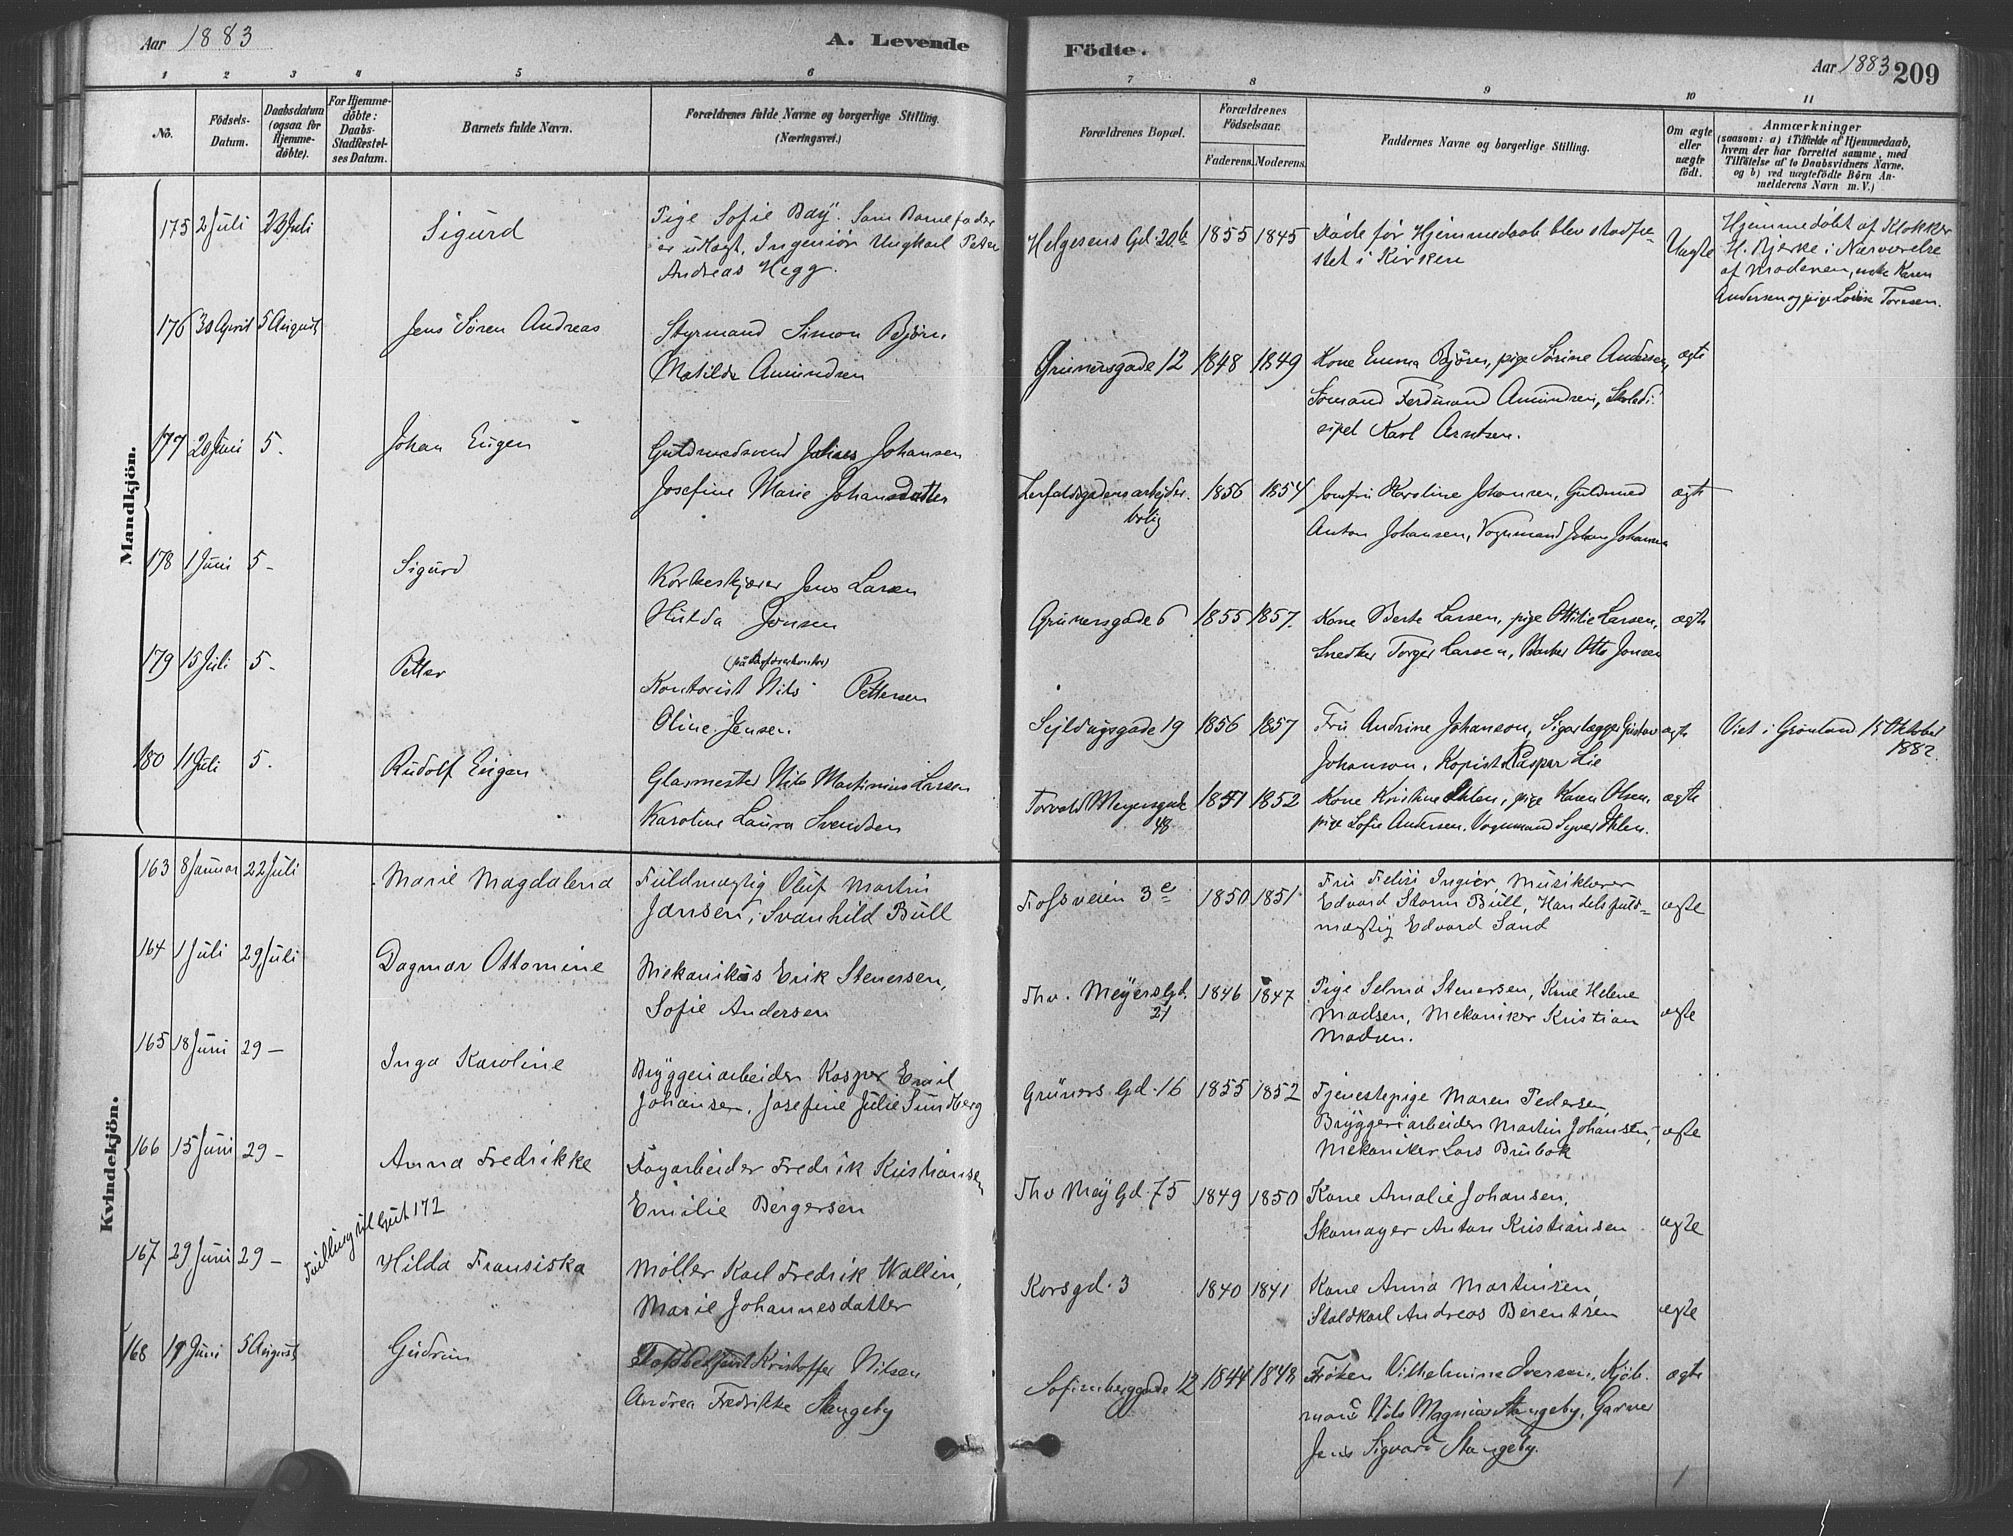 Aar 1883
A. Levende
Födte.
Aar 1883 209
1 2 3 4 5 6 7 8 9 10 11
No.
Födsels-Datum.
Daabsdatum (ogsaa for Hjemme-döbte).
For Hjemme-döbte: Daabs-Stadfæstel-ses Datum.
Barnets fulde Navn.
Forældrenes fulde Navne og borgerlige Stilling. (Næringsvei.)
Forældrenes Bopæl.
Forældrenes Födselsaar.
Faderens. Moderens.
Faddernes Navne og borgerlige Stilling.
Om ægte eller uægte födt.
Anmærkninger
(saasom: a) i Tilfælde af Hjemmedaab, hvem der har forrettet samme, med Tilföielse af to Daabsvidners Navne, og b) ved uægtefödte Börn An-melderens Navn m. V.)
Mandkjön.
175 2 Juli 22 Juli Sigurd
Pige Sofie Bay. Som Barnefader
er udlagt, Ingeniör Ungkarl Peter
Andreas Hegg.
Helgesens Gd. 20 b 1855 1845
Døde før Hjemmedaab blev stadfæ-
stet i Kirken
Uægte
Hjemmedöbt af Klokker
H. Bjerke i Nærværelse
af Moderen, enke Karen
Andersen og pige Lovise Toresen.
176 30 April 5 August Jens Sören Andreas
Styrmand Simon Björn
Matilde Amundsen
Grünersgade 12 1848 1849
Kone Emma Björn, pige Sørine Andersen,
Sømand Ferdinand Amundsen, Skoledi-
sipel Karl Arntsen.
ægte
177 20 Juni 5. Johan Eugen
Guldsmedsvend Johansen
Josefine Marie Johansdatter
arbejder-
bolig
1856 1854
Jomfru Karoline Johansen, Guldsmed
Anton Johansen, Vognmand Johan Johansen
ægte
178 1 Juni 5 - Sigurd
Korkeskjærer Jens Larsen
Hulda Jonsen
Grünersgade 6 1855 1857.
Kone Berte Larsen, pige Ottilie Larsen,
Snedker Torger Larsen, Otto Jonsen
ægte
179 15 Juli 5 - Petter
Kontorist Nils Pettersen
Oline Jensen.
Sejldugsgade 19 1856 1857
Fru Andrine Johanson, Gustav
Johanson, Kopist Kaspar Lie
ægte
Viet i Grønland 15 Oktober
1882.
180 11 Juli 5. Rudolf Eugen
Glasmester Nils Martinius Larsen
Karoline Laura Svendsen
Torvald Meyersgade
48
1851 1852
Kone Kristine Ihlen, pige Karen Olsen,
pige Sofie Andersen, Vognmand Syver Ihlen.
ægte
Kvindekjön.
163 8 Januar 22 Juli Marie Magdalena
Fuldmægtig Oluf Martin
Jansen, Svanhild Bull
Fossveien 3 e 1850 1851
Fru Ingier, Musiklærer
Edvard Storm Bull, Handelsfuld=
mægtig Edvard Sand
ægte
164 1 Juli 29 Juli Dagmar Ottomine
Mekanikus Erik Stenersen,
Sofie Andersen
Thv. Meyers Gd.
21
1846 1847
Pige Selma Stenersen, Kone Helene
Madsen, Mekaniker Kristian
Madsen.
ægte
165 18 Juni 29 - Inga Karoline
Bryggeriarbeider Kasper Emil
Johansen, Josefine Julie Sundberg
Grüners Gd. 16 1855 1852
Tjenestepige Maren Pedersen,
Bryggeriarbeider Martin Johansen,
Mekaniker Lars Brubak
ægte
166 15 Juni 29 - Anna Fredrikke
Fredrik Kristiansen
Emilie Bergersen
Thv Mey Gd. 75 1849 1850
Kone Amalie Johansen,
Skomager Anton Kristiansen
ægte
Tvilling til Gut 172
167 29 Juni 29 - Hilda Fransiska
Møller Karl Fredrik Wallin,
Marie Johannesdatter
Korsgd. 3 1840 1841
Kone Anna Martinsen,
Staldkarl Andreas Berentsen
ægte
168 19 Juni 5 August Gudrun
Kristoffer Nilsen
Andrea Fredrikke Stangeby
Sofienberggade 12 1844 1848
Frøken Vilhelmine Iversen, Kjöb-
mand Nils Magnus Stangeby, Garver
Jens Sigvard Stangeby.
ægte